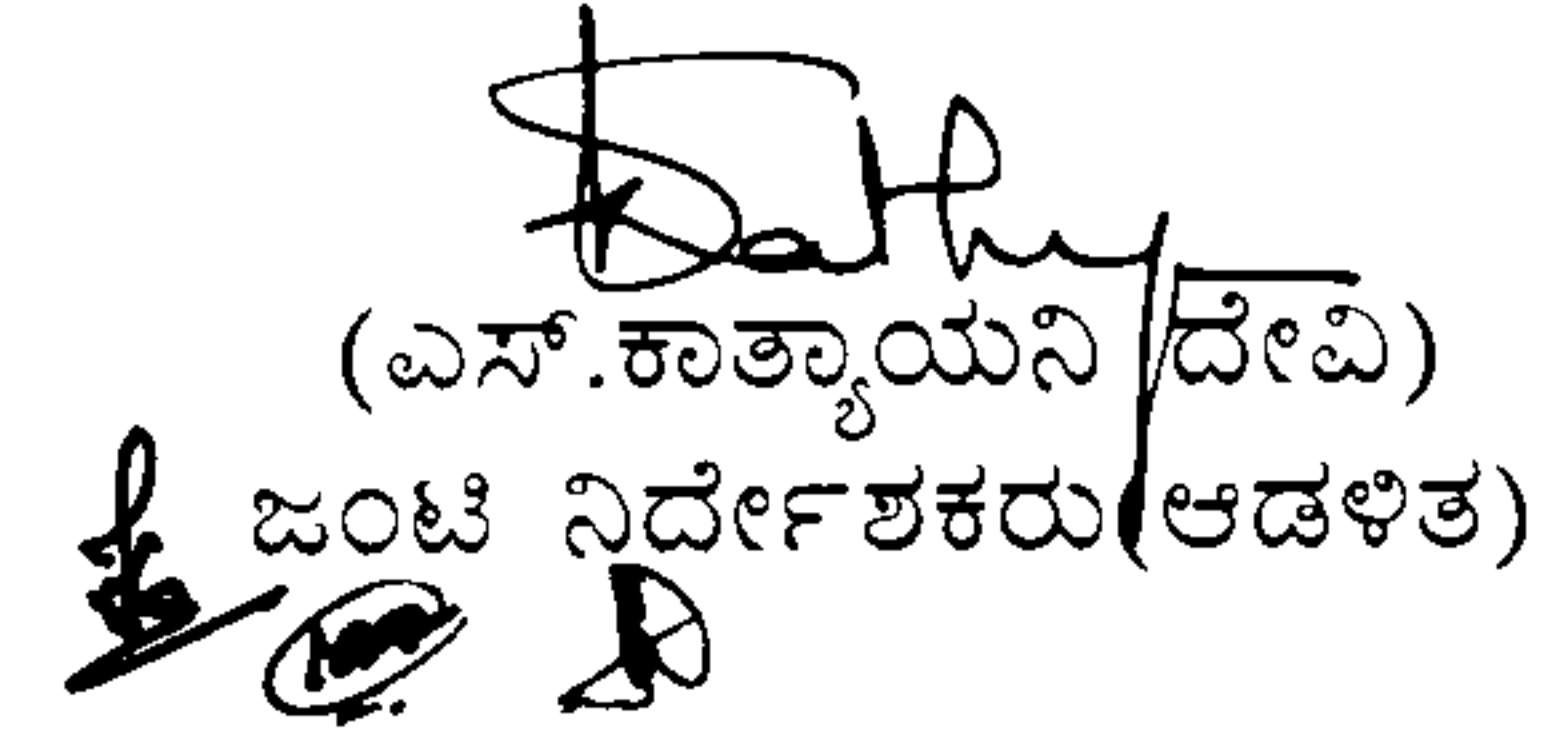 (ಎಸ್.ಕಾತ್ಯಾಯನಿ ದೇವಿ)
ಜಂಟಿ ನಿರ್ದೇಶಕರು(ಆಡಳಿತ)